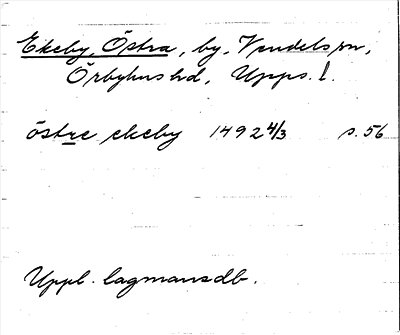 Ekeby, Östra, by, Vendels sn,
Örbyhus hd, Upps. l.
östre ekeby 1492 4/3 s. 56
Uppl. lagmansdb.